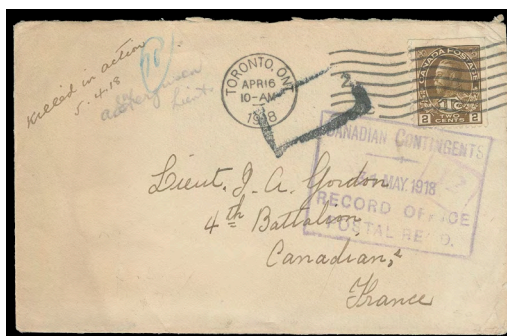 Killed in action
5.4.18
Lieut.
TORONTO, ONT.
APR 16
10-AM
1918
CANADA POSTAGE
1TC
2 TWO CENTS 2
CANADIAN CONTINGENTS
MAY. 1918
RECORD OFFICE
POSTAL
Lieut. J. A. Gordon
4th Battalion
Canadians
France